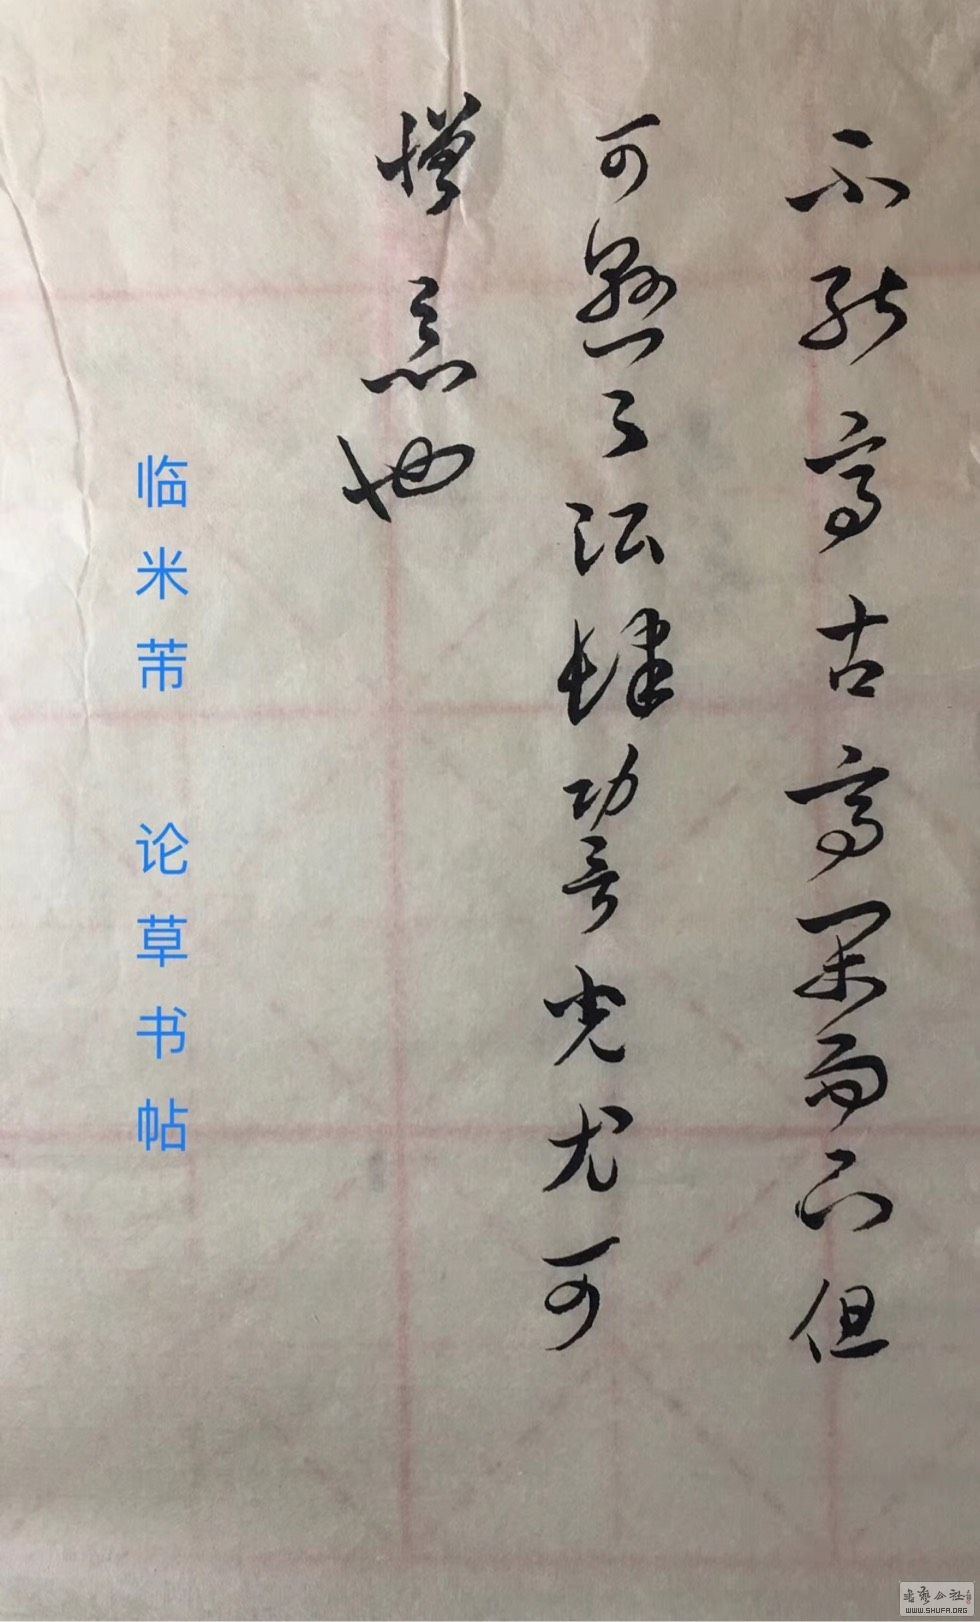 不能高古高闲而下但
可悬之酒肆䛒光尤可
憎恶也
临米芾 论草书帖
书艺公社
WWW.SHUFA.ORG